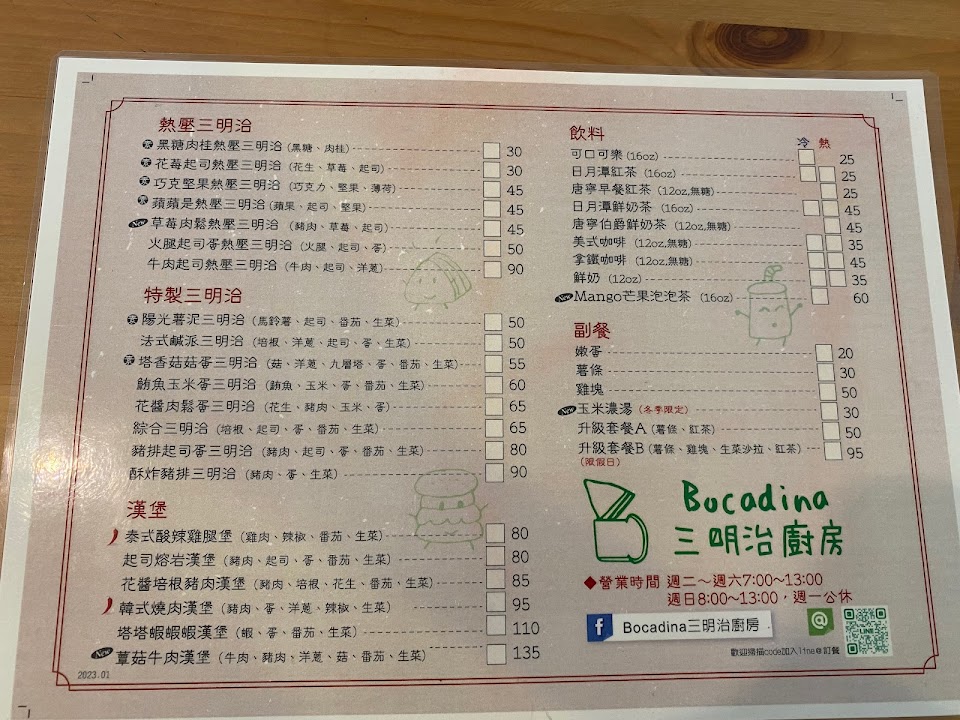 熱壓三明治
素 黑糖肉桂熱壓三明治(黑糖、肉桂) 30
素 花莓起司熱壓三明治(花生、草莓、起司) 30
素 巧克堅果熱壓三明治(巧克力、堅果、薄荷) 45
素 蘋蘋是熱壓三明治(蘋果、起司、堅果) 45
New 草莓肉鬆熱壓三明治(豬肉、草莓、起司) 45
火腿起司蛋熱壓三明治(火腿、起司、蛋) 50
牛肉起司熱壓三明治(牛肉、起司、洋蔥) 90
特製三明治
素 陽光薯泥三明治(馬鈴薯、起司、番茄、生菜) 50
法式鹹派三明治(培根、洋蔥、起司、蛋、生菜) 50
素 塔香菇菇蛋三明治(菇、洋蔥、九層塔、蛋、番茄、生菜) 55
鮪魚玉米蛋三明治(鮪魚、玉米、蛋、番茄、生菜) 60
花醬肉鬆蛋三明治(花生、豬肉、玉米、蛋) 65
綜合三明治(培根、起司、蛋、番茄、生菜) 65
豬排起司蛋三明治(豬肉、起司、蛋、番茄、生菜) 80
酥炸豬排三明治(豬肉、蛋、生菜) 90
漢堡
泰式酸辣雞腿堡(雞肉、辣椒、番茄、生菜) 80
起司熔岩漢堡(豬肉、起司、蛋、番茄、生菜) 80
花醬培根豬肉漢堡(豬肉、培根、花生、番茄、生菜) 85
韓式燒肉漢堡(豬肉、蛋、洋蔥、辣椒、生菜) 95
塔塔蝦蝦蝦漢堡(蝦、蛋、番茄、生菜) 110
New 蕈菇牛肉漢堡(牛肉、豬肉、洋蔥、菇、番茄、生菜) 135
2023.01
飲料 冷 熱
可口可樂(16oz) 25
日月潭紅茶(16oz) 25
唐寧早餐紅茶(12oz,無糖) 25
日月潭鮮奶茶(16oz) 45
唐寧伯爵鮮奶茶(12oz,無糖) 45
美式咖啡(12oz,無糖) 35
拿鐵咖啡(12oz,無糖) 45
鮮奶(12oz) 35
New Mango芒果泡泡茶(16oz) 60
副餐
嫩蛋 20
薯條 30
雞塊 50
New 玉米濃湯(冬季限定) 30
升級套餐A(薯條、紅茶) 50
升級套餐B(薯條、雞塊、生菜沙拉、紅茶) 95
(限假日)
Bocadina
三明治廚房
◆營業時間 週二～週六7:00～13:00
週日8:00～13:00，週一公休
f Bocadina三明治廚房
@ LINE
歡迎掃描code加入line@訂餐